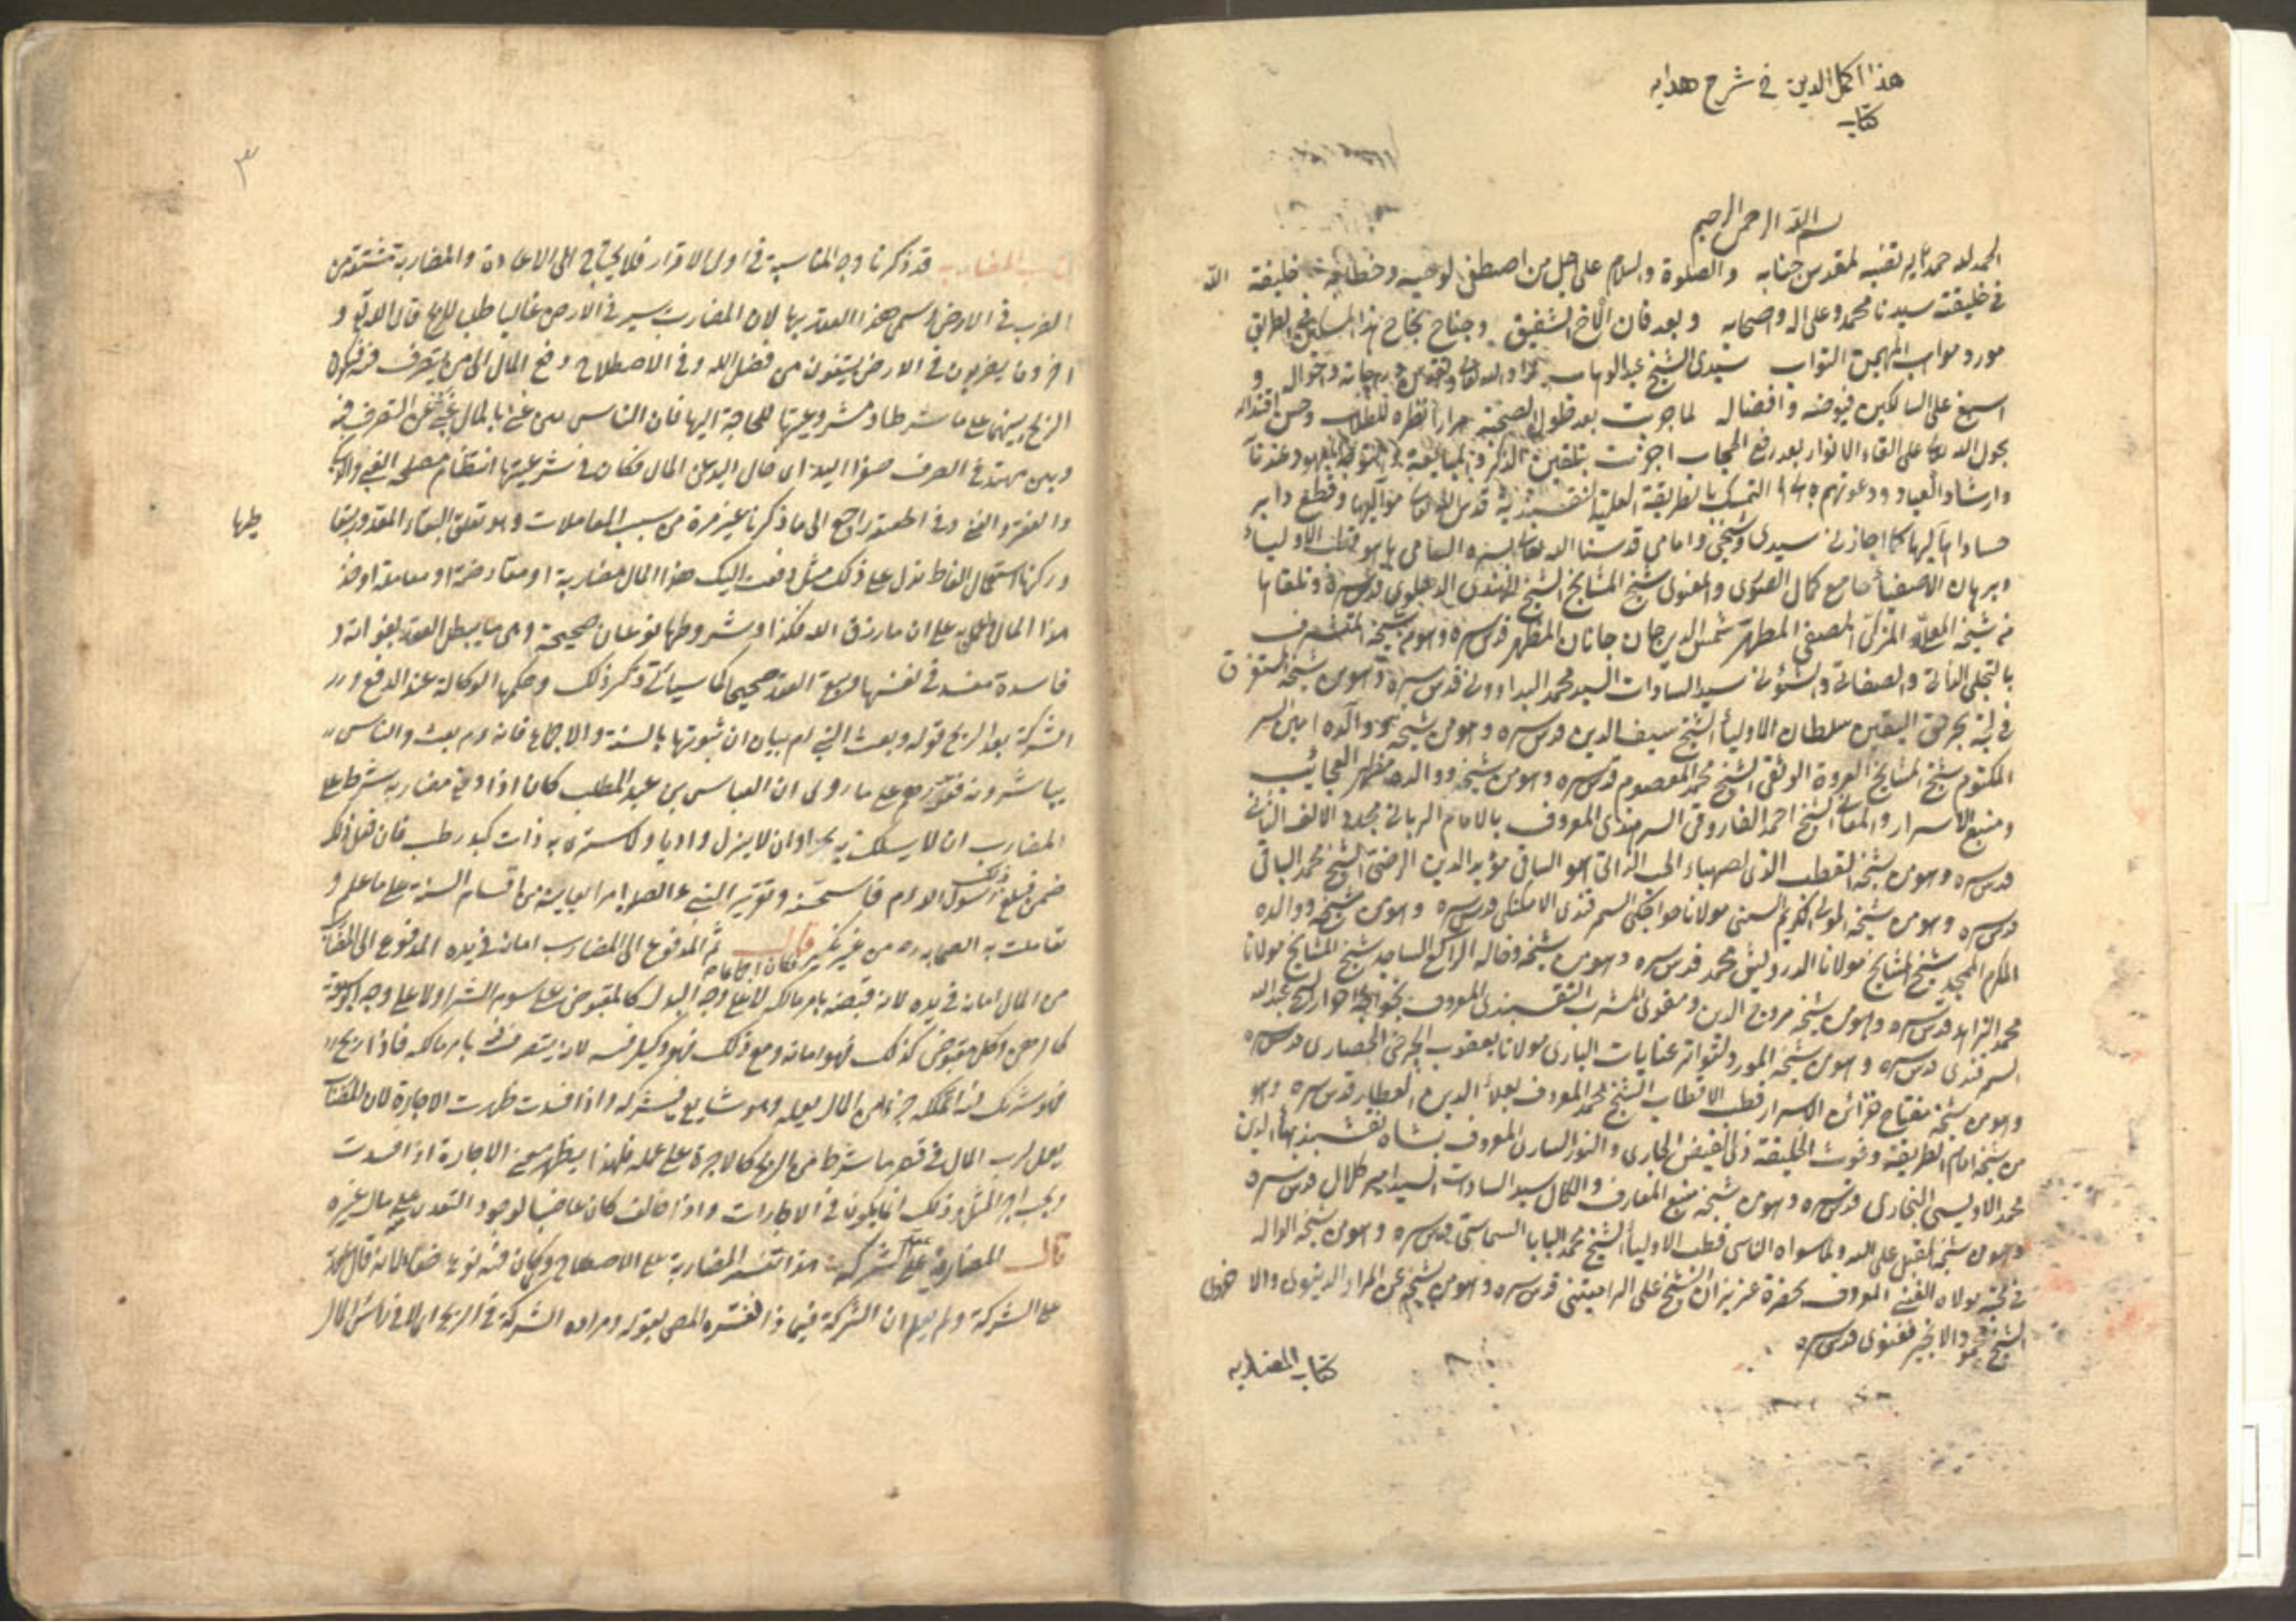 هذا اكمل الدين في شرح هدايه
كتاب
بسم الله الرحمن الرحيم
الحمد لله حمدا يليق بقدس جنابه والصلوة والسلام على اجل من اصطفى لوحيه وخطابه خليفة الله
في خليقته سيدنا محمد وعلى اله واصحابه وبعد فان الاخ الشفيق وجناح نجاح هذا المسكين في الطريق
مورد مواهب المهيمن التواب سيدي الشيخ عبد الوهاب زاد الله تعالى درجاته واحواله و
اسبغ على السالكين فيوضه وافضاله لما جربت بعد طول الصحبة مرارا نظره للطلاب وحسن اقتداره
بحول الله تعالى على القاء الانوار بعد رفع الحجاب اجزت بتلقين الذكر والمبايعة والتوجه المعهود عندنا
وارشاد العباد ودعوتهم الى التمسك بالطريقة العلية النقشبندية قدس الله تعالى اهاليها وقطع دابر
حساد اهاليها كما اجازني سيدي وشيخي وامامي قدسنا الله تعالى بسره السامي وهو قطب الاولياء
وبرهان الاصفياء جامع كمال الصوري والمعنوي شيخ المشايخ الشيخ الهندي الدهلوي قدس سره وتلقاها
من شيخه المعلى المزكى المصفى المطهر شمس الدين جان جانان المظهر قدس سره وهو من شيخه المتشرف
بالتجلي الذاتي والصفاتي والشؤني سيد السادات السيد محمد البداووني قدس سره وهو من شيخه المستغرق
في لجة بحر حق اليقين سلطان الاولياء الشيخ سيف الدين قدس سره وهو من شيخه ووالده امين السر
المكتوم شيخ المشايخ العروة الوثقى الشيخ محمد المعصوم قدس سره وهو من شيخه ووالده مظهر العجايب
ومنبع الاسرار والمعاني الشيخ احمد الفاروقي السرهندي المعروف بالامام الرباني مجدد الالف الثاني
قدس سره وهو من شيخه القطب الذي صهباء الحب الذاتي هو الساقي مؤيد الدين الرضي الشيخ محمد الباقي
قدس سره وهو من شيخه المولى الكريم السني مولانا خواجكي السمرقندي الامكنكي قدس سره وهو من شيخه ووالده
المكرم الممجد شيخ المشايخ مولانا الدرويش محمد قدس سره وهو من شيخه وخاله الراكع الساجد شيخ المشايخ مولانا
محمد الزاهد قدس سره وهو من شيخه مروج الدين ومقوي المشرب النقشبندي المعروف بخواجه احرار الشيخ عبيد الله
السمرقندي قدس سره وهو من شيخه المورد لتواتر عنايات الباري مولانا يعقوب الجرخي الحصاري قدس سره
وهو من شيخه مفتاح خزائن الاسرار قطب الاقطاب الشيخ محمد المعروف بعلاء الدين العطار قدس سره وهو
من شيخه امام الطريقة وغوث الخليقة ذي الفيض الجاري والنور الساري المعروف بشاه نقشبند بهاء الدين
محمد الاويسي البخاري قدس سره وهو من شيخه منبع المعارف والكمال سيد السادات السيد امير كلال قدس سره
وهو من شيخه المقبل على الله ولما سواه الناسي قطب الاولياء الشيخ محمد البابا السماسي قدس سره وهو من شيخه الواله
في محبة مولاه الغني المعروف بحضرة عزيزان الشيخ على الراميتني قدس سره وهو من شيخه عن المراد الدنيوي والاخروي
الشيخ محمود الانجير فغنوي قدس سره
كتاب المضاربه
٣
كتاب المضاربه قد ذكرنا وجه المناسبة في اول الاقرار فلا يحتاج الى الاعادة والمضاربة مشتقة من
الضرب في الارض وسمى هذا العقد بها لان المضارب يسير في الارض غالبا طلبا للربح قال الله تع و
اخرون يضربون في الارض يبتغون من فضل الله وفي الاصطلاح دفع المال الى من يتصرف فيه ليكون
الربح بينهما على ما شرطا ومشروعيتها للحاجة اليها فان الناس بين غني بالمال غبي عن التصرف فيه
وبين مهتد في التصرف صفر اليد اى خالى اليد عن المال فكان في شرعيتها انتظام مصلحة الغبي والذكي
والفقير والغني راجع الى ما ذكرنا غير مرة من سبب المعاملات وهو تعلق البقاء المقدور بتعا
طيها
وركنها استعمال الفاظ تدل على ذلك مثل دفعت اليك هذا المال مضاربة او مقارضة او معاملة او خذ
هذا المال واعمل به على ان ما رزق الله فكذا وشروطها نوعان صحيحة وهي ما يبطل العقد بفواته و
فاسدة مفسدة في نفسها ويبقى العقد صحيحا كما سيأتي ذكر ذلك وحكمها الوكالة عند الدفع و
الشركة بعد الربح قوله وبعث النبي عم بيان ان ثبوتها بالسنة والاجماع فانه عم بعث والناس
يباشرونه فقررهم على ما روى ان العباس بن عبد المطلب كان اذا دفع مضاربه شرط على
المضارب ان لا يسلك به بحرا وان لا ينزل واديا ولا يشتري به ذات كبد رطب فان فعل ذلك
ضمن فبلغ ذلك رسول الله عم فاستحسنه وتقرير النبي عم الصواب امرا يعاينه من اقسام السنة على ما علم و
تعاملت به الصحابه رض من غير نكير فكان اجماعا قال ثم المدفوع الى المضارب امانة في يده المدفوع الى المضارب
من المال امانة في يده لانه قبضه بامر مالكه لا على وجه البدل كالمقبوض على سوم الشراء ولا على وجه الوثيقة
كالرهن وكل مقبوض كذلك فهو امانه ومع ذلك فهو وكيل فيه لانه يتصرف فيه بامر مالكه فاذا ربح
فهو شريك فيه لتملكه جزءا من المال بعمله وهو شايع فيشركه واذا فسدت ظهرت الاجارة لان المضارب
يعمل لرب المال في قصر ما شرط من الربح كالاجرة على عمله فلهذا يظهر معنى الاجارة اذا فسدت
ويجب اجر المثل وذلك انما يكون في الاجارات واذا خالف كان غاصبا لوجود التعدى على مال غيره
قال المضاربة عقد على الشركة هذا تفسير المضاربة على الاصطلاح وكان فيه نوع خفاء لانه قال عقد
على الشركة ولم يعلم ان الشركة فيما ذا ففسره المص بقوله ومراده الشركة في الربح اى لا في رأس المال